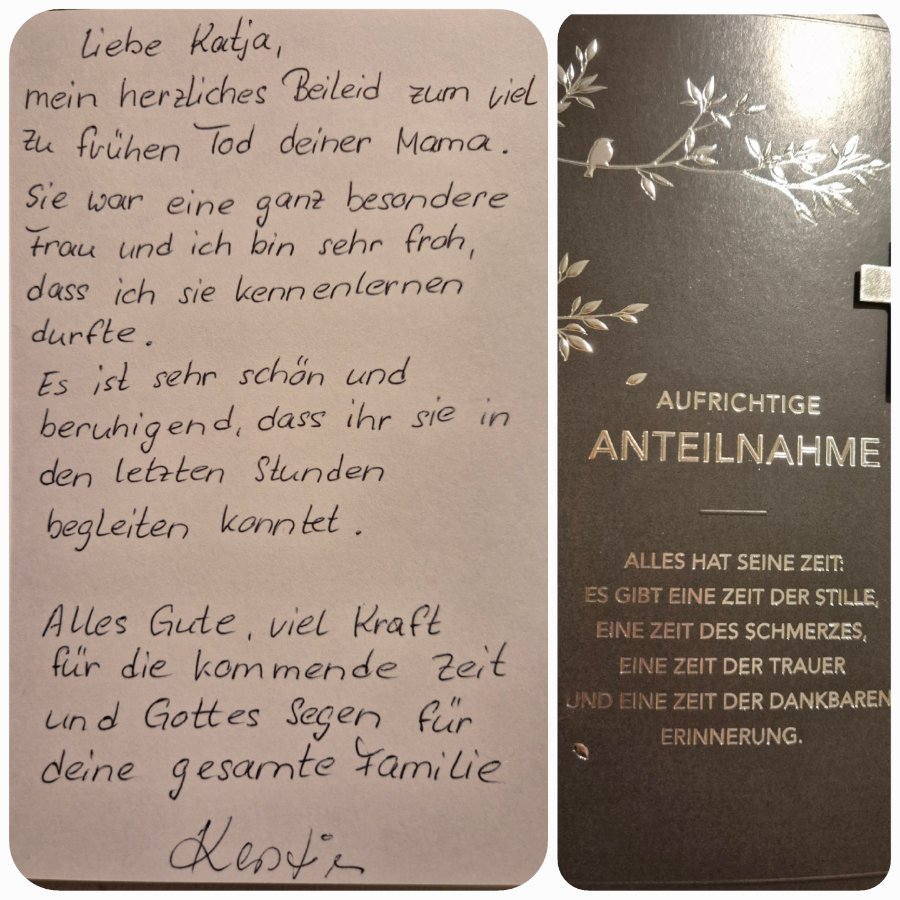 Liebe Katja,
mein herzliches Beileid zum viel
zu frühen Tod deiner Mama.
Sie war eine ganz besondere
Frau und ich bin sehr froh,
dass ich sie kennenlernen
durfte.
Es ist sehr schön und
beruhigend, dass ihr sie in
den letzten Stunden
begleiten konntet.
Alles Gute, viel Kraft
für die kommende Zeit
und Gottes Segen für
deine gesamte Familie
Kerstin
AUFRICHTIGE
ANTEILNAHME
ALLES HAT SEINE ZEIT:
ES GIBT EINE ZEIT DER STILLE,
EINE ZEIT DES SCHMERZES,
EINE ZEIT DER TRAUER
UND EINE ZEIT DER DANKBAREN
ERINNERUNG.